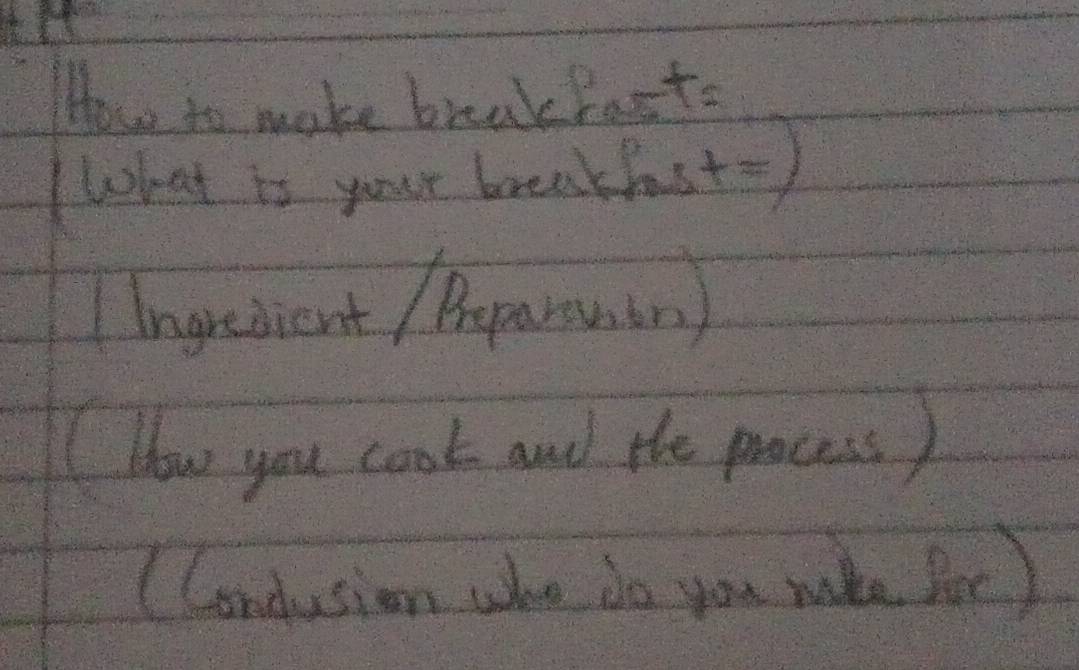 How to make breakfast=
(What is your breakfast=)
(Ingredient / Preparation)
(How you cook and the process)
(Conclusion who do you make for)